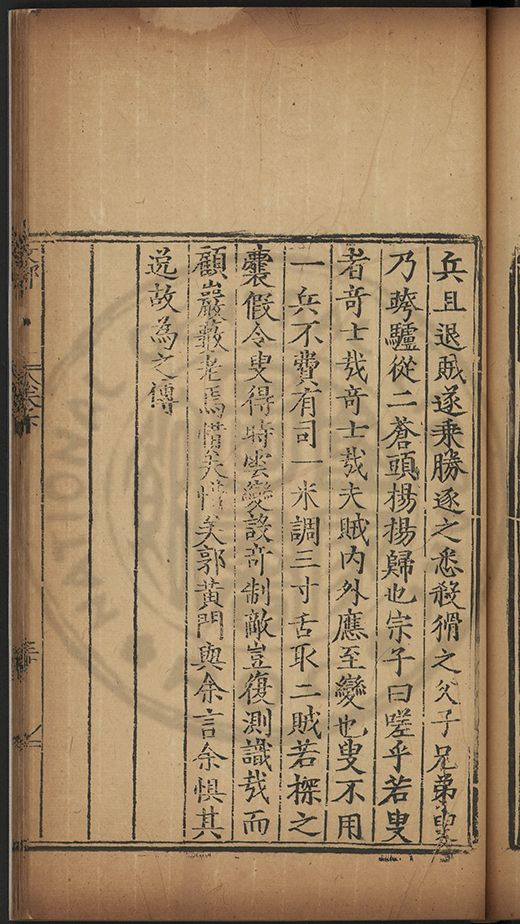 兵且退賊遂乘勝逐之悉殺猾之父子兄弟叟
乃跨驢從二蒼頭揚揚歸也宗子曰嗟乎若叟
者奇士哉奇士哉夫賊内外應至變也叟不用
一兵不費有司一米調三寸舌取二賊若探之
囊假令叟得時雲變設奇制敵豈復測識哉而
顧巖藪老焉惜矣惜矣郭黃門與余言余懼其
逸故為之傳